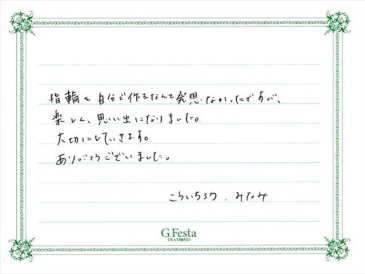 指輪を自分で作るなんて発想なかったですが、
楽しく、思い出になりました。
大切にしていきます。
ありがとうございました。
こういちろう、みなみ
G.Festa
DIAMOND